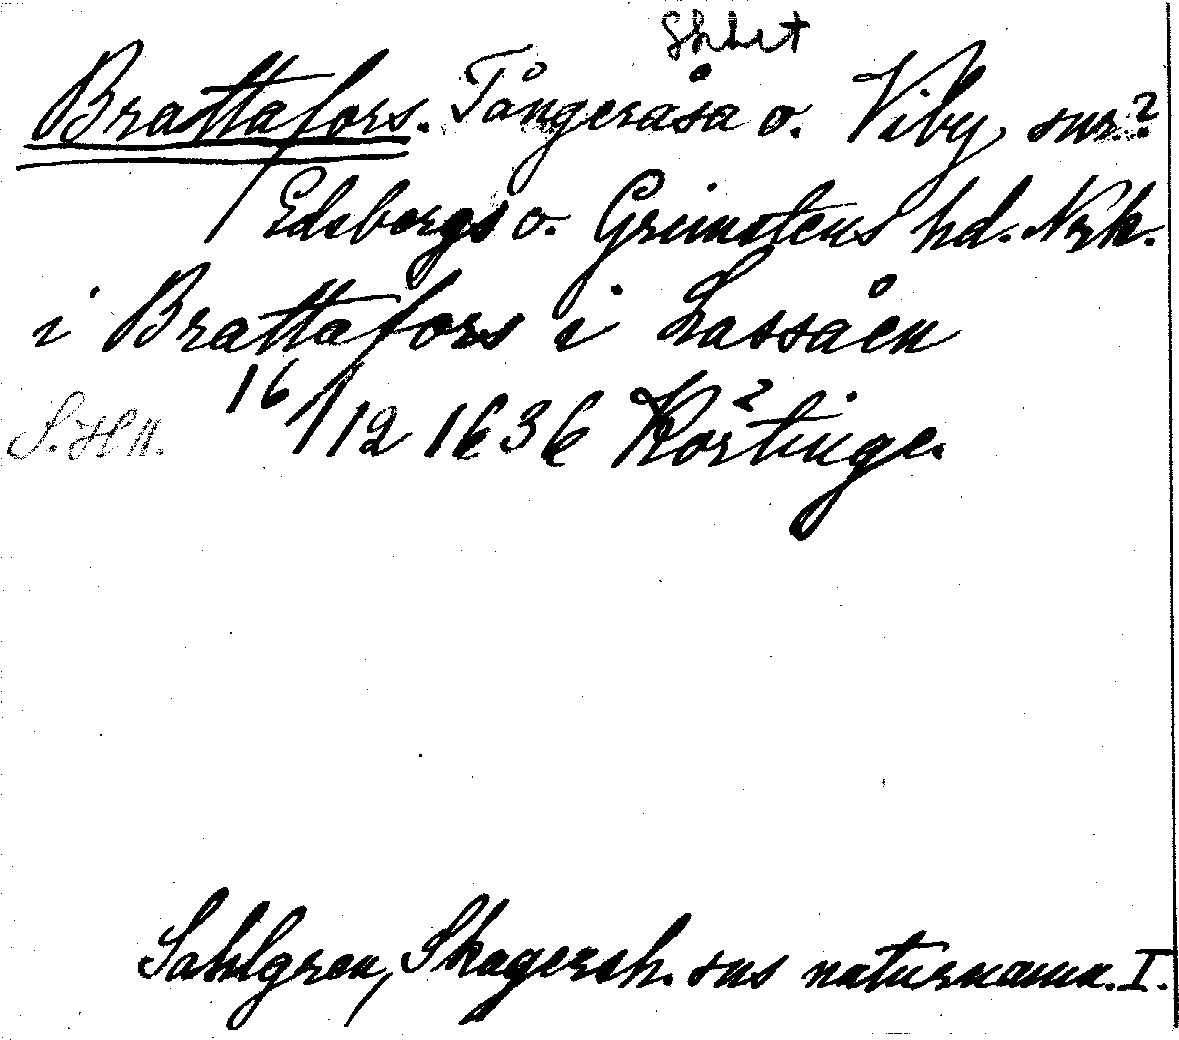 Skbet
Brattafors. Tångeråsa o. Viby snr?
Edsbergs o. Grimstens hd. Nrk.
i Brattafors i Lassåen
16/12 1636 Körtinge.
Sahlgren, Skagersh. sns naturnamn. I.